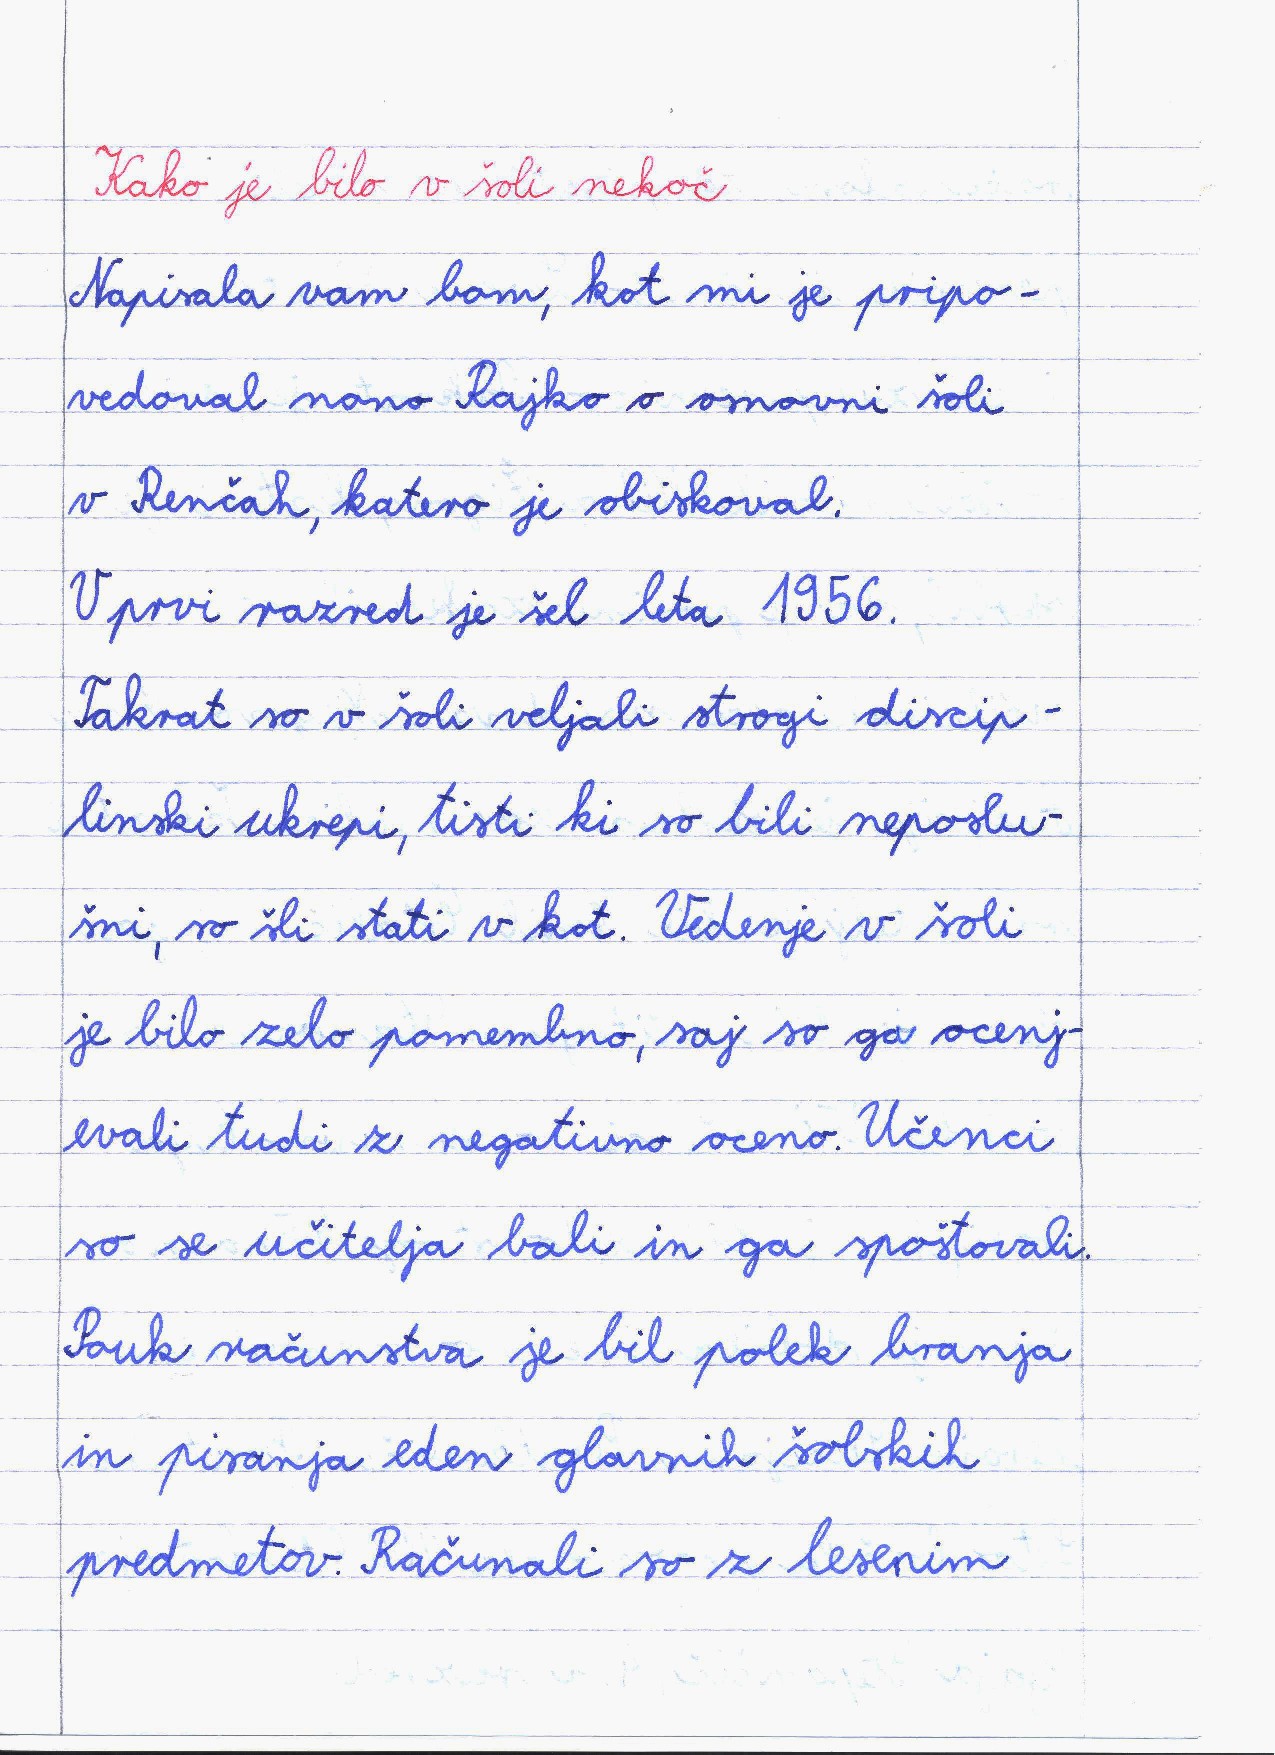 Kako je bilo v šoli nekoč
Napisala vam bom, kot mi je pripo-
vedoval nono Rajko o osnovni šoli
v Renčah, katero je obiskoval.
V prvi razred je šel leta 1956.
Takrat so v šoli veljali strogi discip-
linski ukrepi, tisti ki so bili neposlu-
šni, so šli stati v kot. Vedenje v šoli
je bilo zelo pomembno, saj so ga ocenj-
evali tudi z negativno oceno. Učenci
so se učitelja bali in ga spoštovali.
Pouk računstva je bil polek branja
in pisanja eden glavnih šolskih
predmetov. Računali so z lesenim